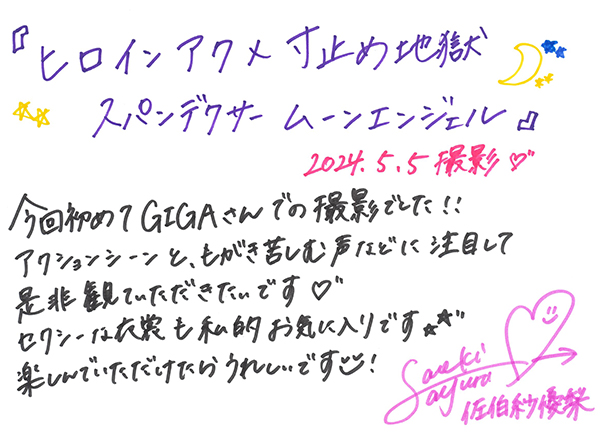 『ヒロインアクメ寸止め地獄
スパンデクサー ムーンエンジェル』
2024.5.5撮影♡
今回初めてGIGAさんでの撮影でした!!
アクションシーンと、もがき苦しむ声などに注目して
是非観ていただきたいです♡
セクシーな衣裳も私的お気に入りです☆☆
楽しんでいただけたらうれしいです!
Saeki
Sayura
佐伯紗優梨